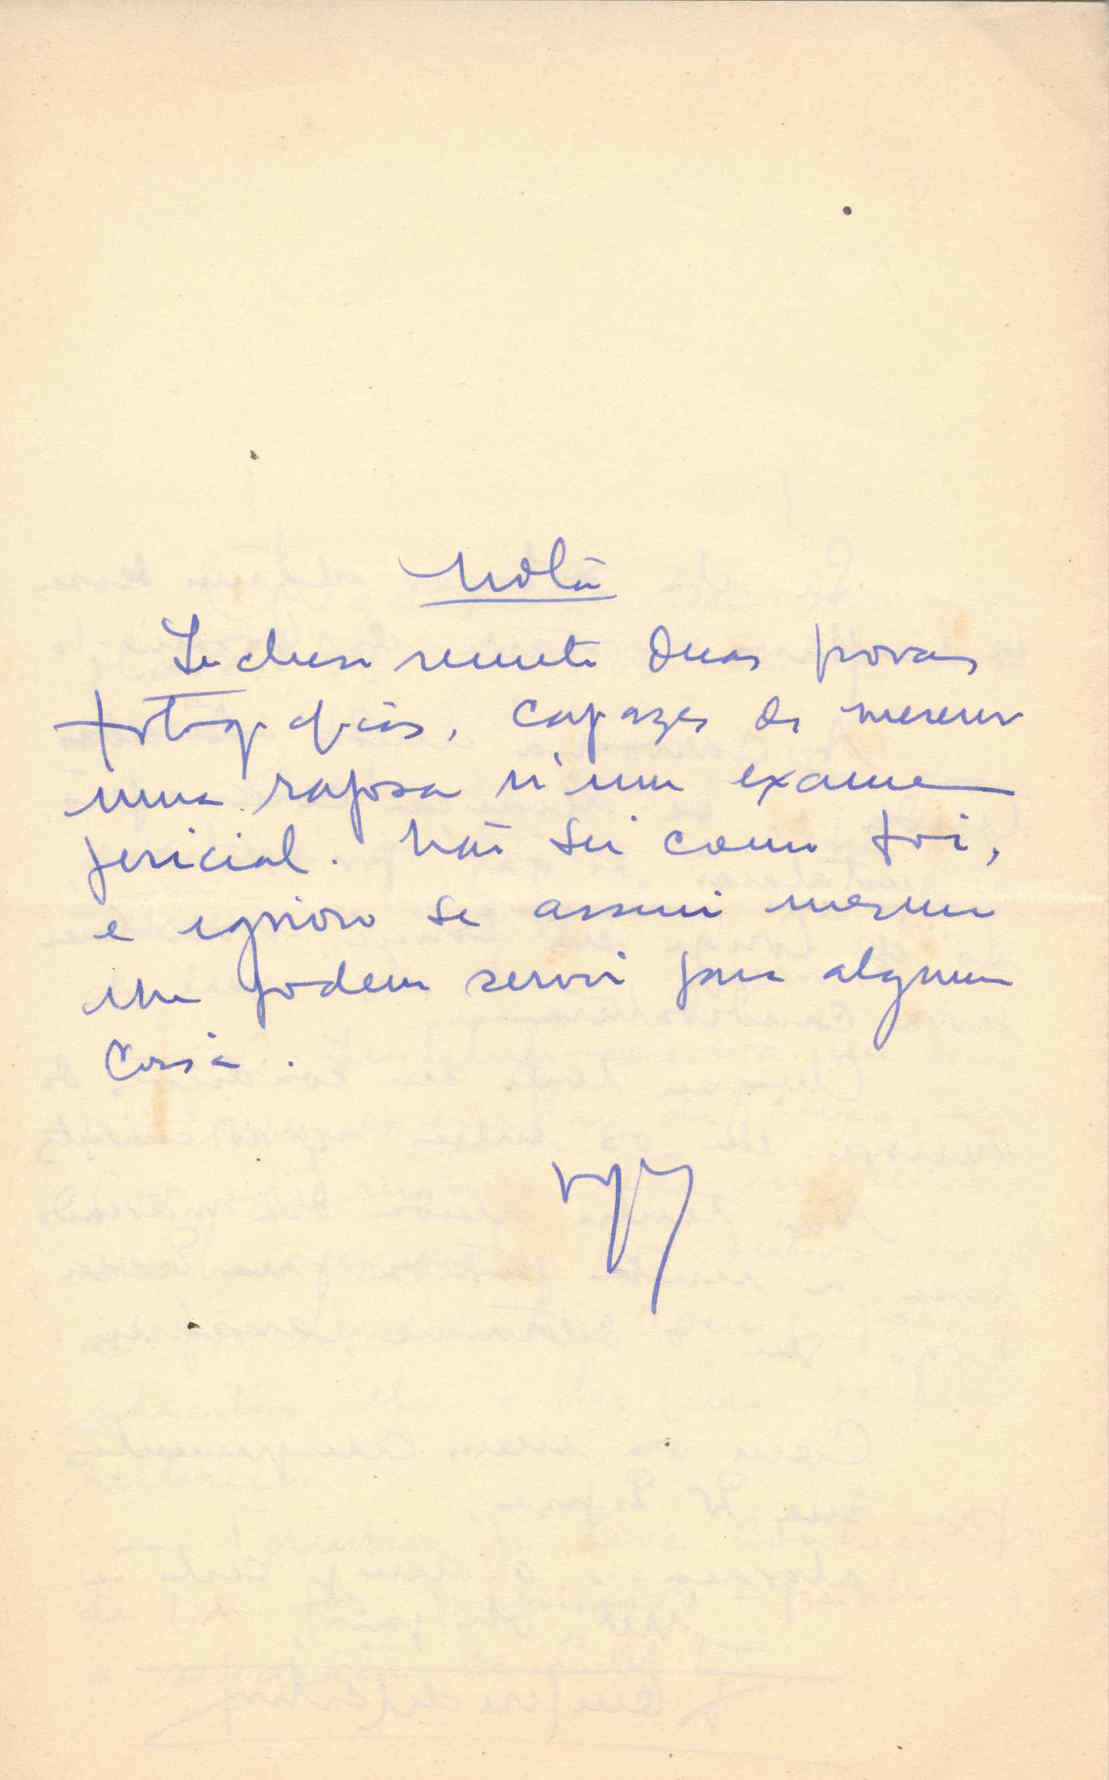 Nota
Lu cheso remete duas provas
fotográficas, capazes de merecer
uma raposa n'um exame
pericial. Não sei como foi,
e ignoro se assim mesmo
lhe podem servir para alguma
coisa.